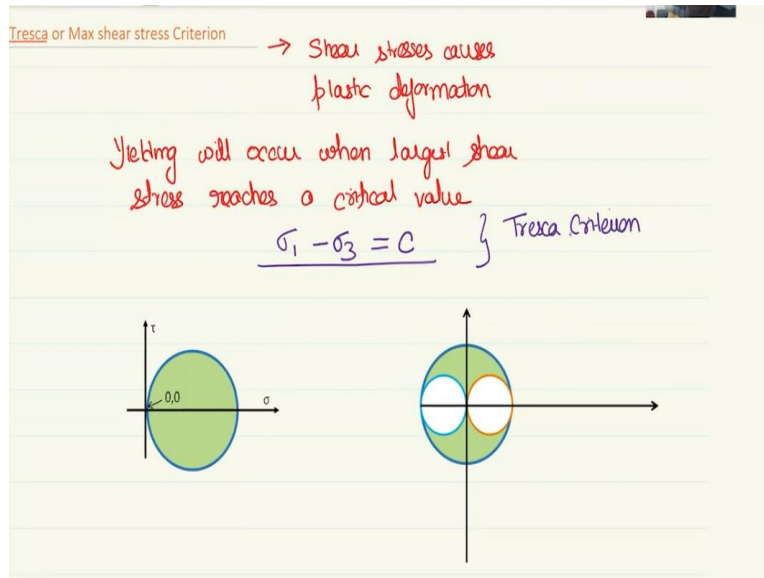 Tresca or Max shear stress Criterion
→ Shear stresses causes
plastic deformation
Yielding will occur when largest shear
stress reaches a critical value
σ₁ - σ₃ = C } Tresca Criterion
τ
0,0
σ